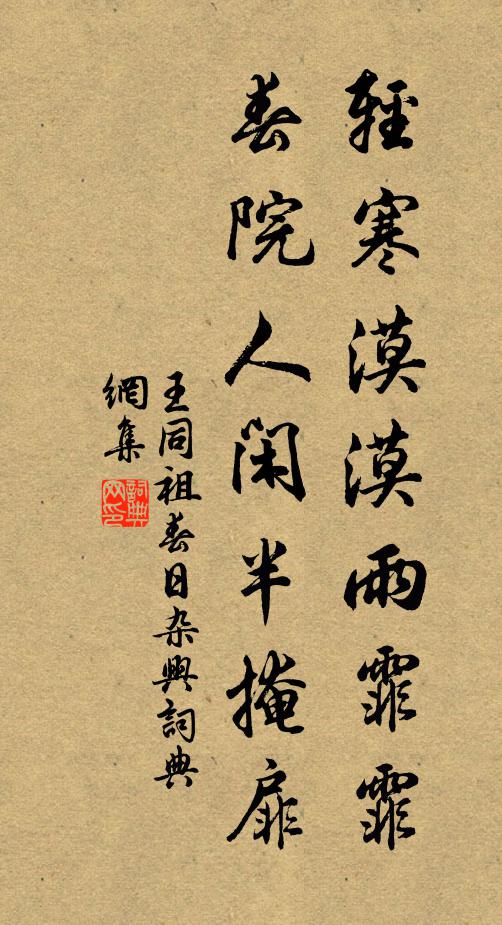 輕寒漠漠雨霏霏
春院人閑半掩扉
王同祖春日杂興詞典
網集
詞典
网印